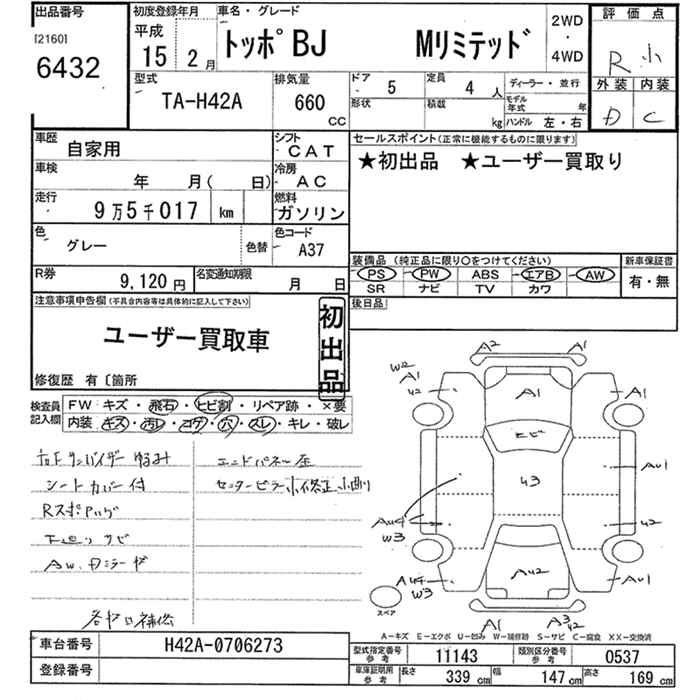 出品番号
[2160]
6432
初度登録年月
平成
15 年 2 月
車名・グレード
トッポBJ Mリミテッド
2WD
・
4WD
評価点
R 小
外装 内装
D C
型式
TA-H42A
排気量
660
CC
ドア 5
定員 4 人
形状
積載 kg
ディーラー・並行
モデル年式 年
ハンドル 左・右
車歴 自家用
シフト CAT
車検 年 月( 日)
冷房 AC
走行 9万5千017 km
燃料 ガソリン
色 グレー 色替
色コード A37
R券 9,120円
名変通知期限 月 日
セールスポイント(正常に機能するものに限ります)
★初出品 ★ユーザー買取り
装備品 (純正品に限り○をつけてください)
PS PW ABS エアB AW
SR ナビ TV カワ
新車保証書
有・無
後日品
注意事項申告欄(不具合内容等は具体的に記入して下さい)
ユーザー買取車
初出品
修復歴 有〔箇所
検査員記入欄
FW キズ・飛石・ヒビ割・リペア跡・×要
内装 キズ・汚レ・コゲ・穴・スレ・キレ・破レ
シートカバー付
エンドパネル歪
センターピラー小修正、小曲り
下廻りサビ
A2 A1
W2
A1
A1
A1
ヒビ
AU1
U3
AU4
W3
U2
AU4
W3
AU2
AU1
スペア
A1
A3
U2
A-キズ E-エクボ U-凹み W-補修跡 S-サビ C-腐食 XX-交換済
車台番号 H42A-0706273
登録番号
型式指定番号 参考 11143
類別区分番号 参考 0537
車庫証明用 参考 長さ 339 cm 幅 147 cm 高さ 169 cm